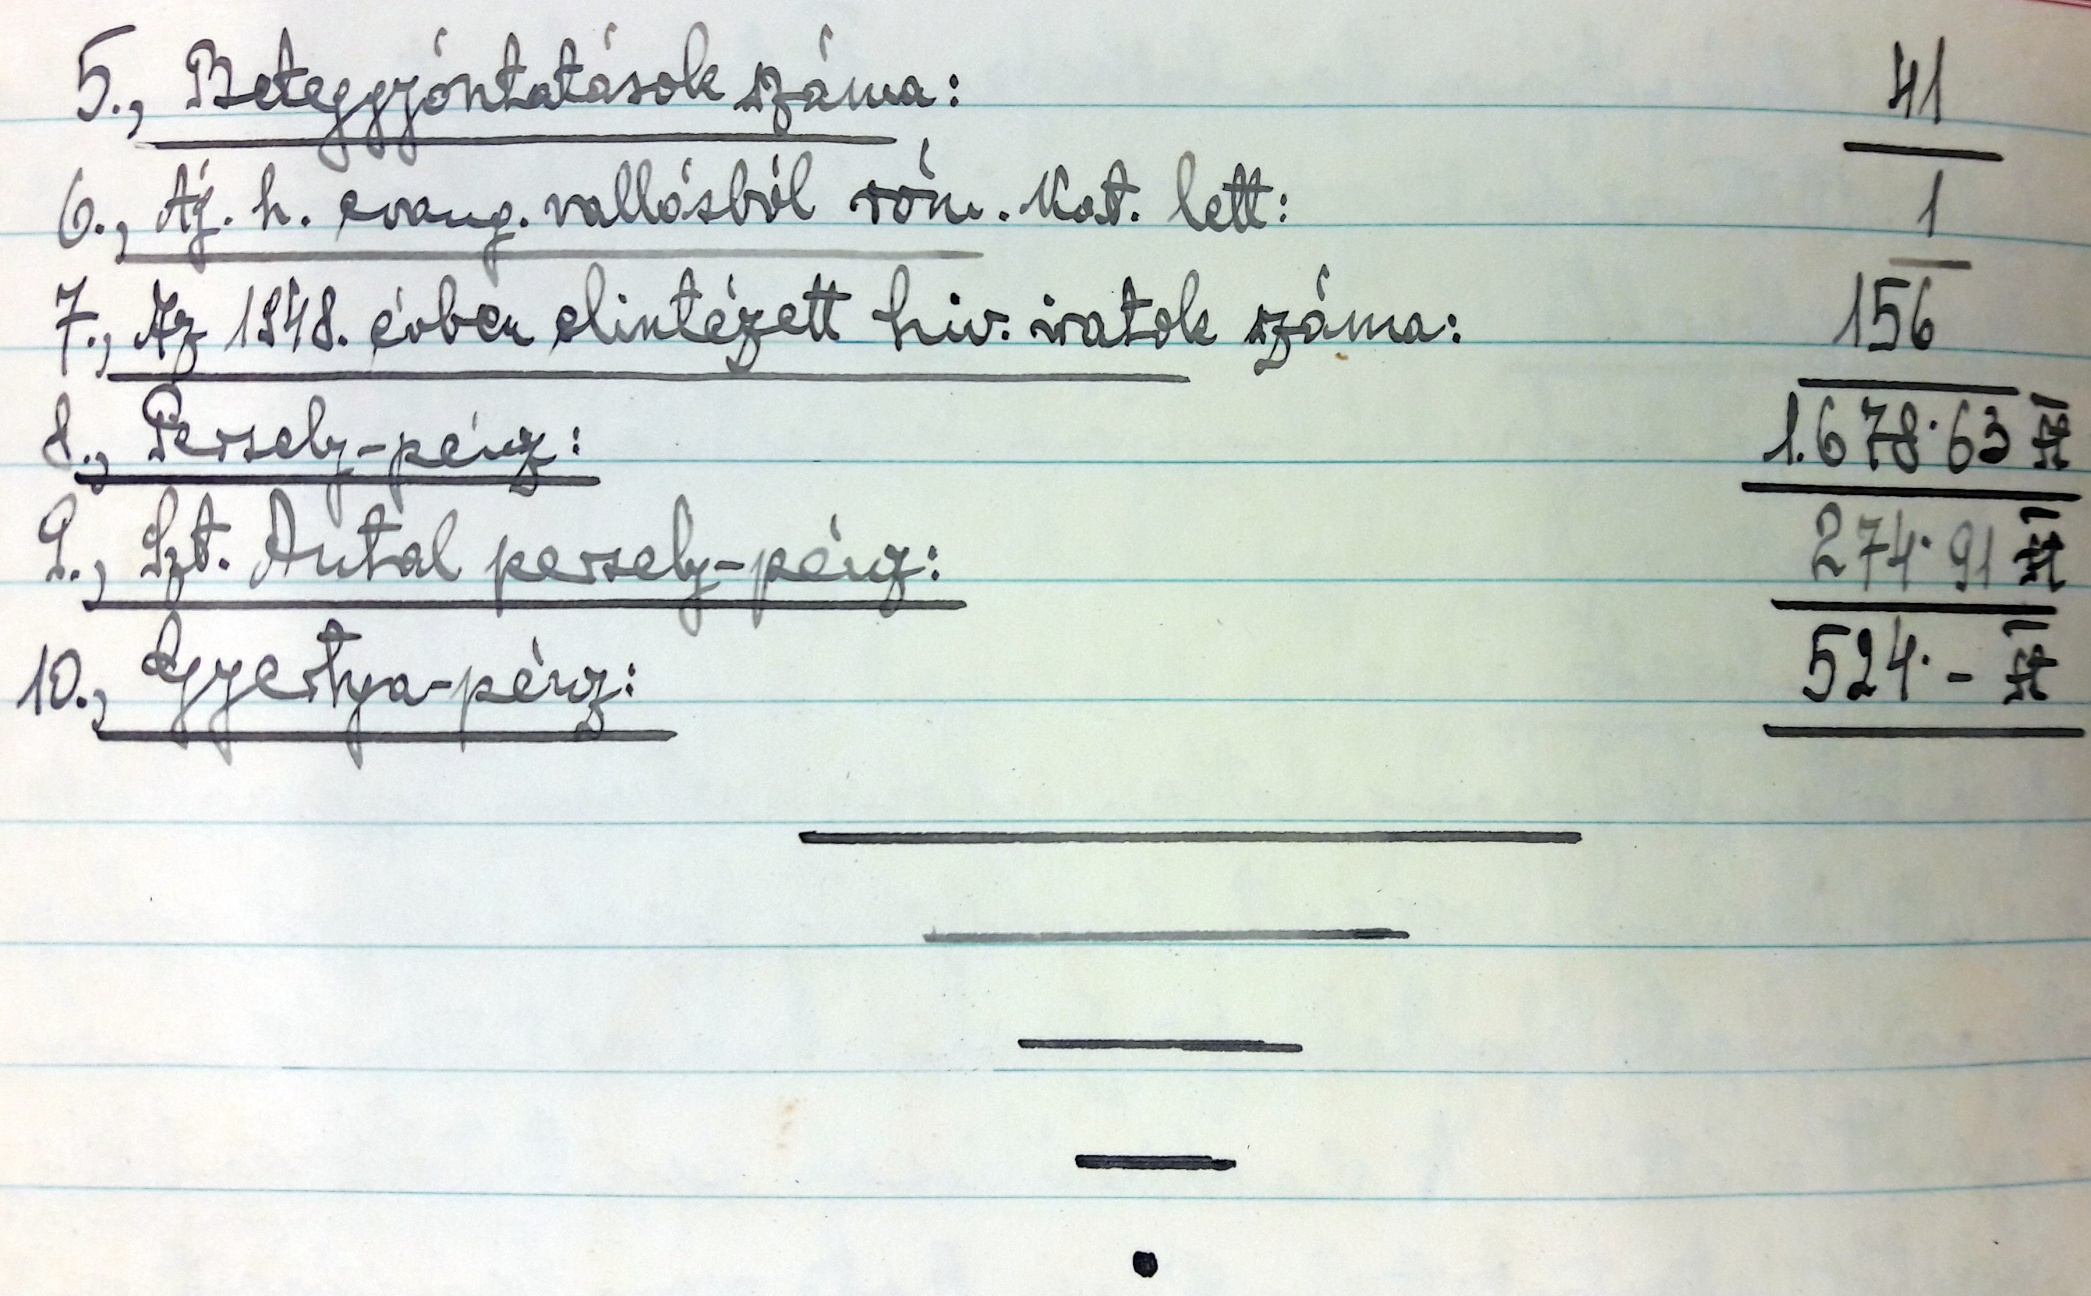 5., Beteggyóntatások száma: 41
6., Ág. h. evang. vallásból róm. Kat. lett: 1
7., Az 1948. évben elintézett hiv. iratok száma: 156
8., Persely-pénz: 1.678·63 Ft
9., Szt. Antal persely-pénz: 274·91 Ft
10., Gyertya-pénz: 524·- Ft